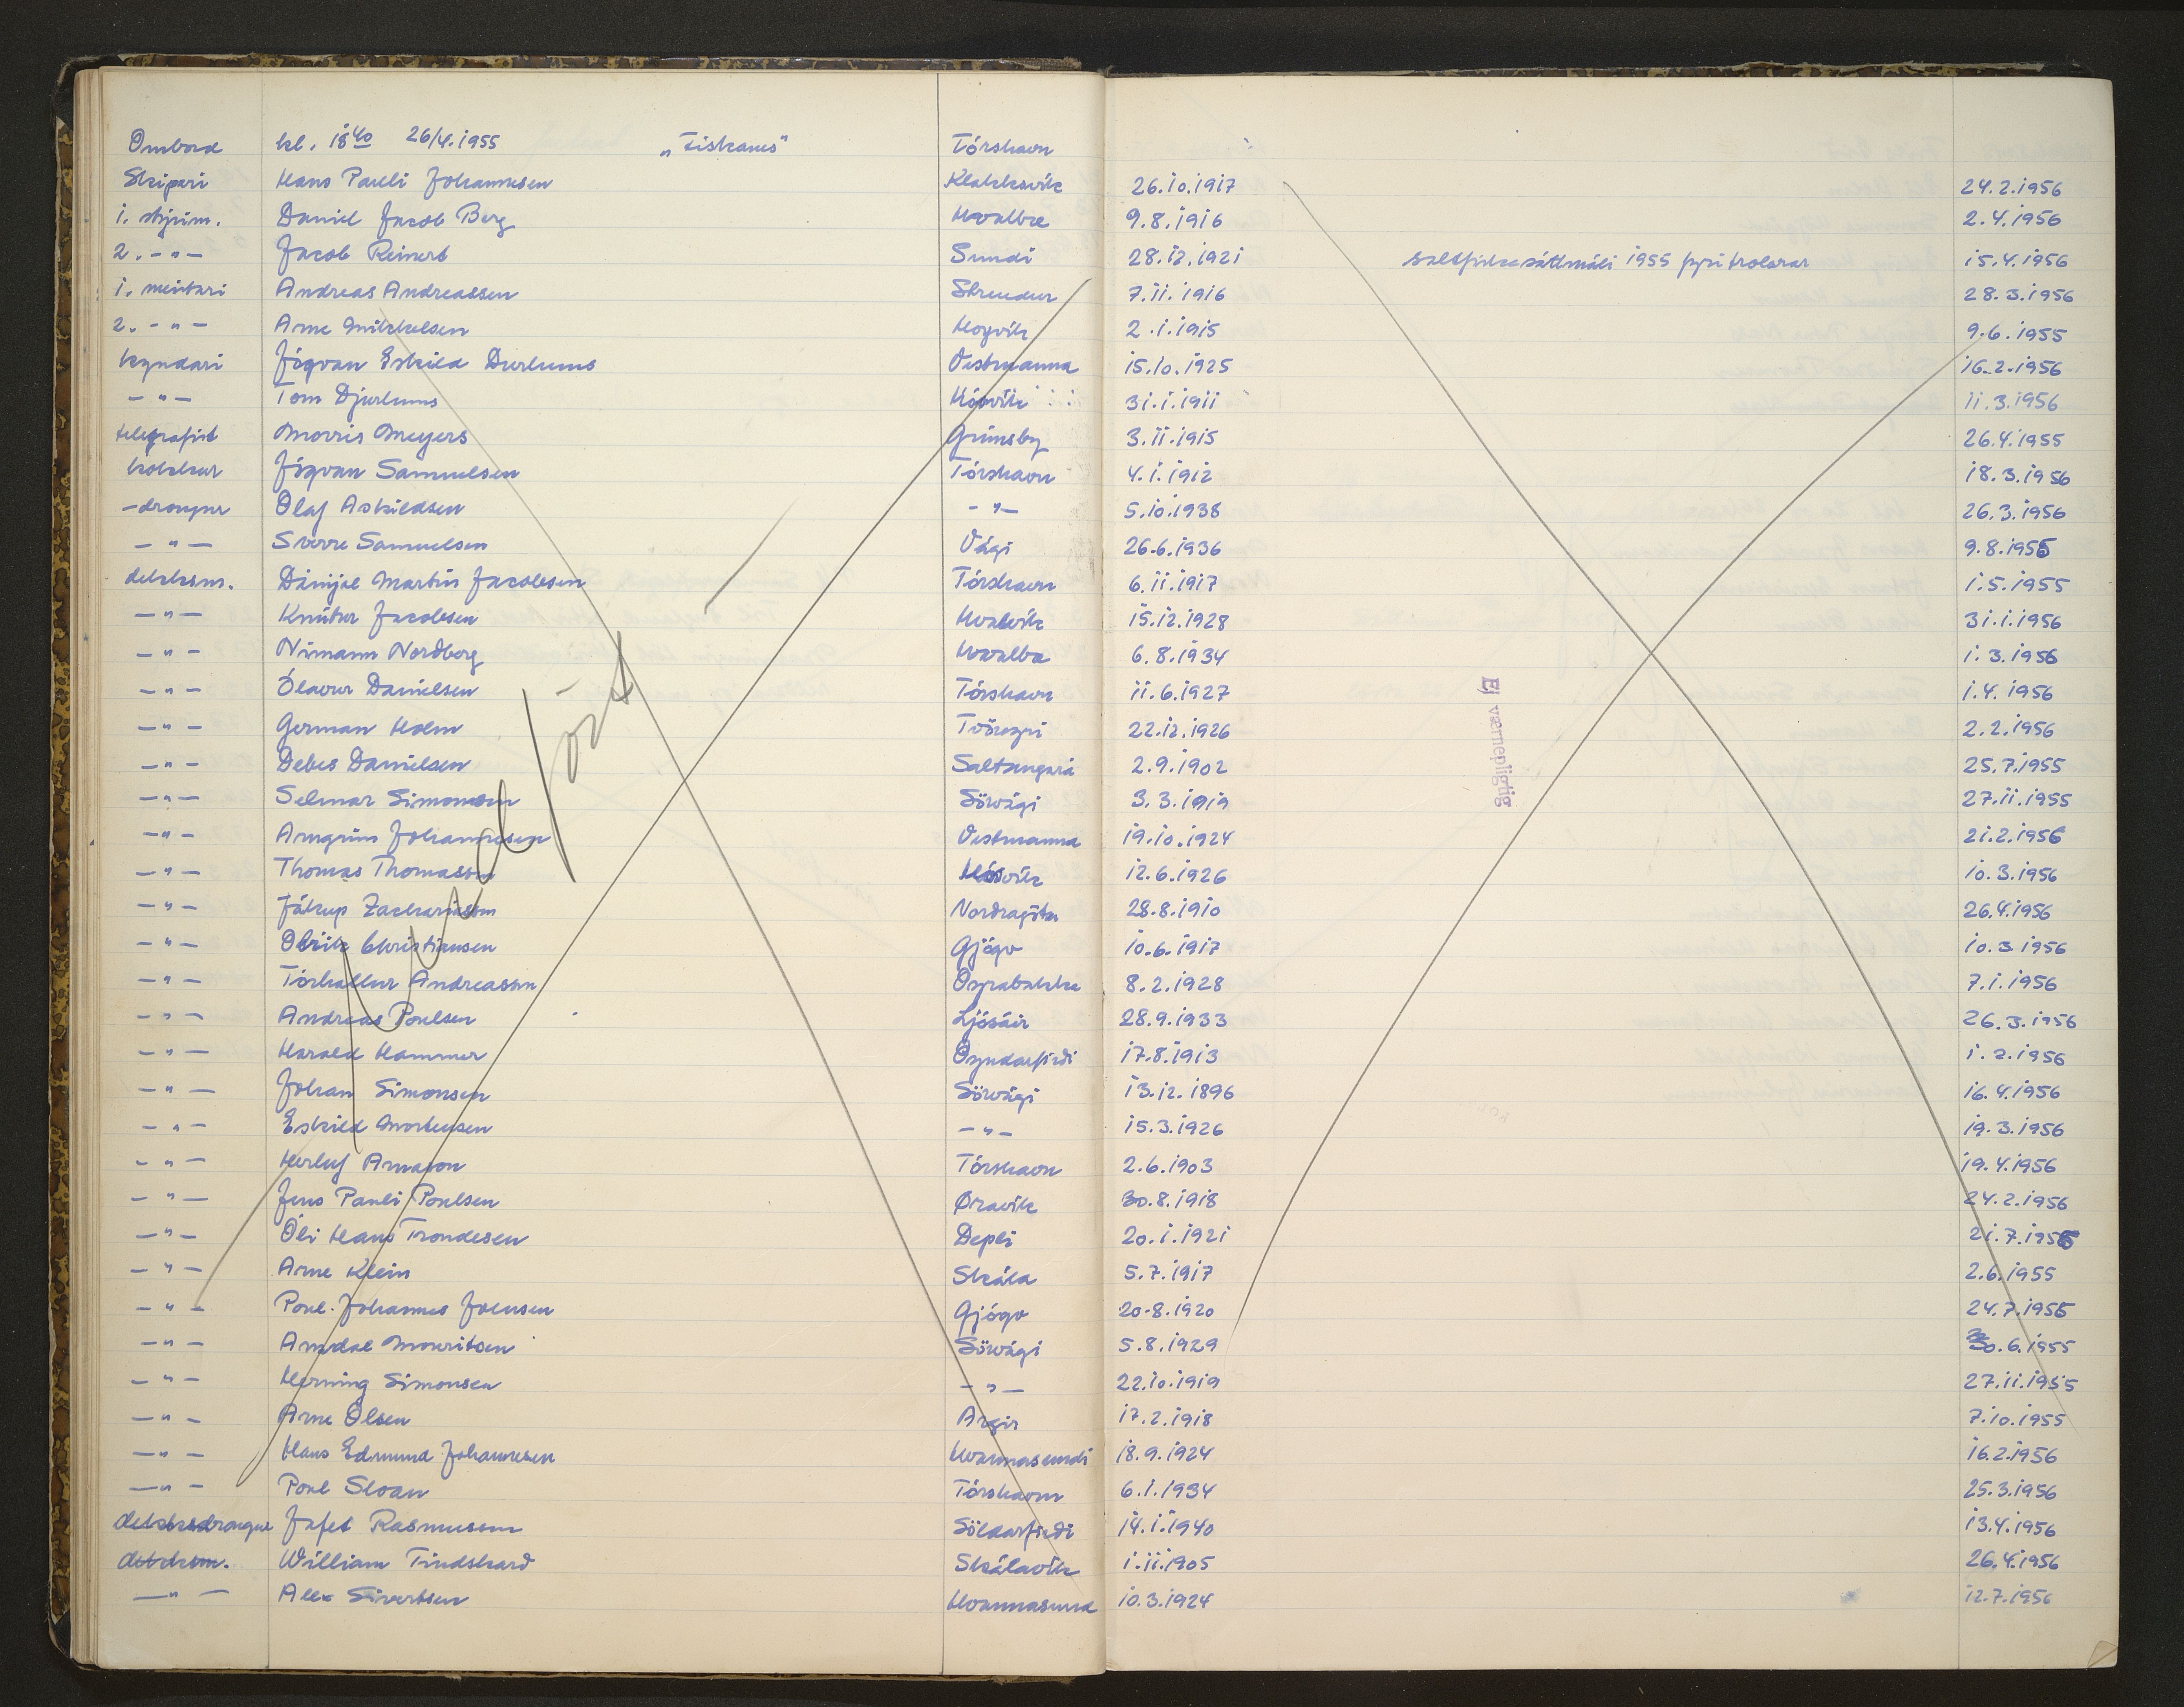 Ombord kl. 18 40 26/4.1955 "Fiskanes" Tórshavn
Skipari Hans Pauli Johannesen Klakksvík 26.10.1917 24.2.1956
1. stýrim. Daniel Jacob Berg Hvalbæ 9.8.1916 2.4.1956
2. - " - Jacob Reinert Sundi 28.12.1921 saltfiskasáttmáli 1955 fyri trolarar 15.4.1956
1. meistari Andreas Andreassen Strendur 7.11.1916 28.3.1956
2. - " - Arne Mikkelsen Hoyvík 2.1.1915 9.6.1955
kyndari Jógvan Eskild Durhuus Vestmanna 15.10.1925 16.2.1956
- " - Tom Djurhuus Hósvík 31.1.1911 11.3.1956
telegrafist Morris Meyers Grimsby 3.11.1915 26.4.1955
kokkur Jógvan Samuelsen Tórshavn 4.1.1912 18.3.1956
-drongur Olaf Askildsen - " - 5.10.1938 26.3.1956
- " - Sverre Samuelsen Vági 26.6.1936 9.8.1955
dekksm. Dánjal Martin Jacobsen Tórshavn 6.11.1917 1.5.1955
- " - Knútur Jacobsen Hvalvík 15.12.1928 31.1.1956
- " - Nimann Nordberg Hvalba 6.8.1934 1.3.1956
- " - Ólavur Danielsen Tórshavn 11.6.1927 1.4.1956
- " - German Holm Tvöroyri 22.12.1926 2.2.1956
- " - Debes Danielsen Saltangará 2.9.1902 25.7.1955
- " - Selmar Simonsen Sörvági 3.3.1919 27.11.1955
- " - Arngrim Johannesen Vestmanna 19.10.1924 21.2.1956
- " - Thomas Thomassen Hósvík 12.6.1926 10.3.1956
- " - Jákup Zachariassen Nordragöta 28.8.1910 26.4.1956
- " - Olrik Christiansen Gjógv 10.6.1917 10.3.1956
- " - Tórhallur Andreassen Oyrabakka 8.2.1928 7.1.1956
- " - Andreas Poulsen Ljósáir 28.9.1933 26.3.1956
- " - Harald Hammer Oyndarfirdi 17.8.1913 1.2.1956
- " - Johan Simonsen Sörvági 13.12.1896 16.4.1956
- " - Eskild Mortensen - " - 15.3.1926 19.3.1956
- " - Herluf Arnason Tórshavn 2.6.1903 19.4.1956
- " - Jens Pauli Poulsen Øravík 30.8.1918 24.2.1956
- " - Óli Hans Trondesen Depli 20.1.1921 21.7.1955
- " - Arne Klein Skála 5.7.1917 2.6.1955
- " - Poul Johannes Joensen Gjógv 20.8.1920 24.7.1955
- " - Arndal Mouritsen Sörvági 5.8.1929 30.6.1955
- " - Herning Simonsen - " - 22.10.1919 27.11.1955
- " - Arne Olsen Argir 17.2.1918 7.10.1955
- " - Hans Edmund Johannesen Hvannasundi 18.9.1924 16.2.1956
- " - Poul Sloan Tórshavn 6.1.1934 25.3.1956
dekksdrongur Jafet Rasmussen Söldarfirdi 14.1.1940 13.4.1956
dekksm. William Tindskard Skálavík 1.11.1905 26.4.1956
- " - Alex Sivertsen Hvannasund 10.3.1924 12.7.1956
Ej værnepligtig